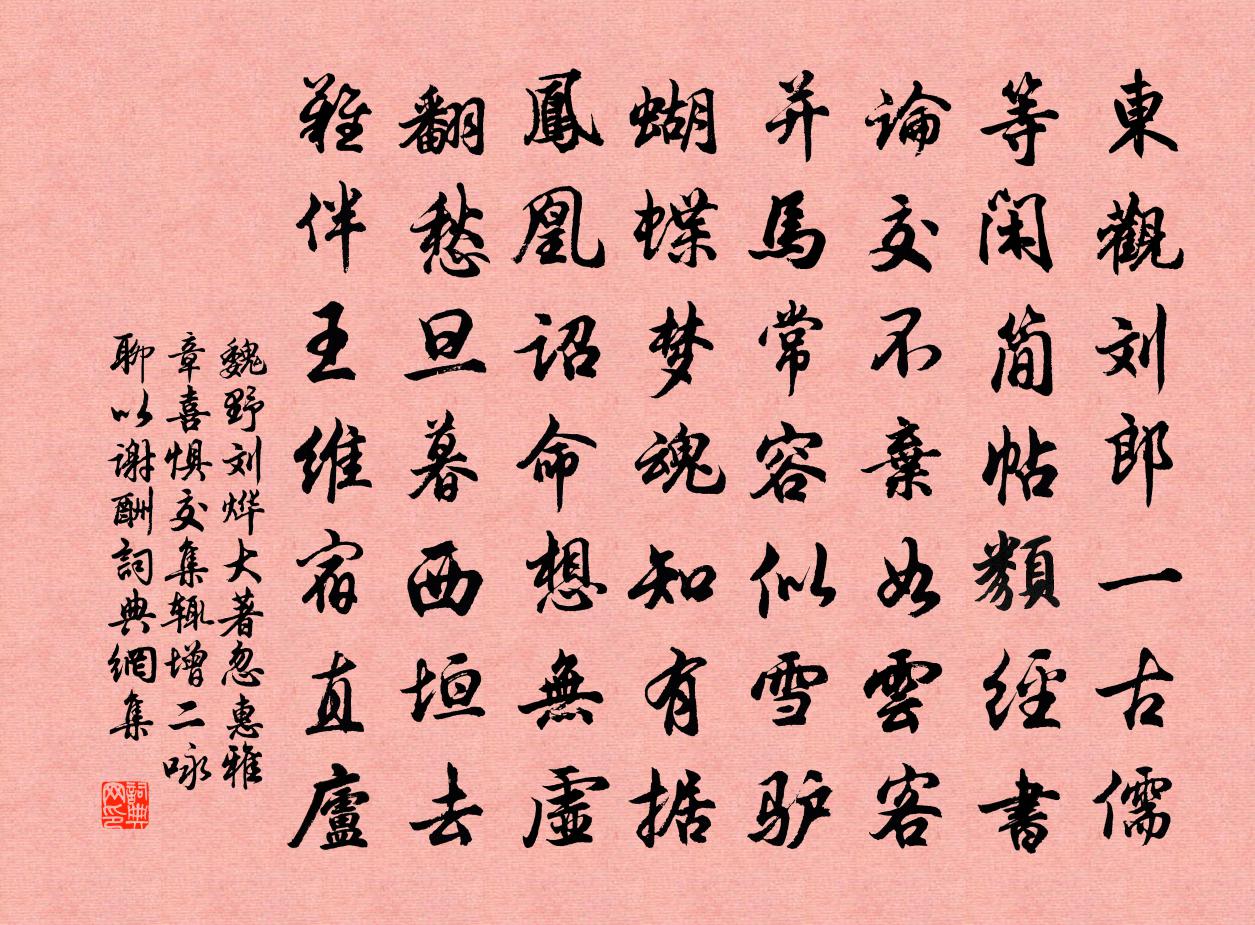 東觀刘郎一古儒
等闲简帖類經書
論交不棄如雲客
并馬常容似雪驴
蝴蝶梦魂知有据
鳳凰詔命想無虛
翻愁旦暮西垣去
難伴王維宿直廬
魏野刘烨大著忽惠雅
章喜惧交集辄增二咏
聊以谢酬詞典網集
詞典网印